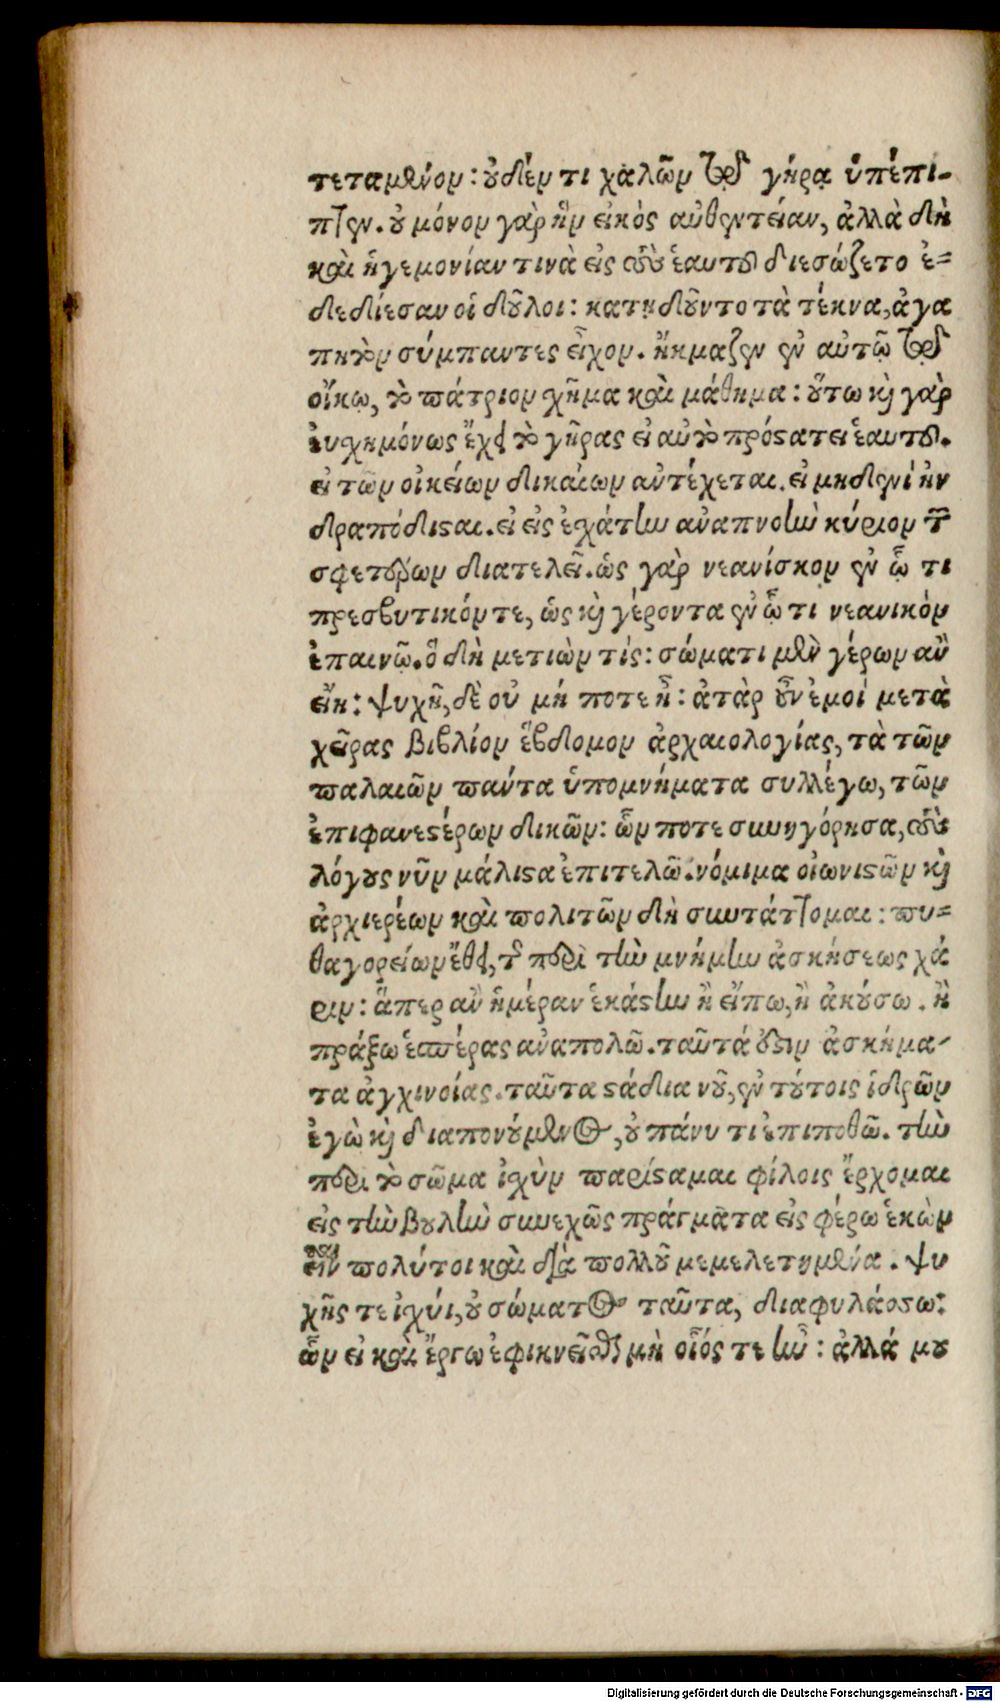 τεταμένον: οὐδέν τι χαλῶν τῷ γήρᾳ ὑπέπι-
πτεν. οὐ μόνον γὰρ ἣν εἰκὸς αὐθεντείαν, ἀλλὰ δὴ
καὶ ἡγεμονίαν τινὰ εἰς τοὺς ἑαυτοῦ διεσώζετο ἐ=
δεδίεσαν οἱ δοῦλοι: κατῃδοῦντο τὰ τέκνα, ἀγα
πητὸν σύμπαντες εἶχον. ἤκμαζεν ἐν αὐτῷ τῷ
οἴκῳ, τὸ πάτριον χῆμα καὶ μάθημα: οὕτω καὶ γὰρ
ἐυχημόνως ἔχει τὸ γῆρας εἰ αὐτὸ πρόστατει ἑαυτοῦ.
εἰ τῶν οἰκείων δικαίων αντέχεται. εἰ μηδενὶ ἠν
δραπόδισται. εἰ εἰς ἐχάτην αναπνοὴν κύριον τῶν
σφετέρων διατελεῖ. ὡς γὰρ νεανίσκον ἐν ᾧ τι
πρεσβυτικόν τε, ὡς καὶ γέροντα ἐν ᾧ τι νεανικὸν
ἐπαινῶ. ὃ δὴ μετιὼν τίς: σώματι μὲν γέρων αν
εἴη: ψυχῇ, δὲ οὐ μή ποτε ᾖ: ἀτὰρ οὖν ἐμοί μετὰ
χεῖρας βιβλίον ἕβδομον ἀρχαιολογίας, τὰ τῶν
παλαιῶν πάντα ὑπομνήματα συλλέγω, τῶν
ἐπιφανεστέρων δικῶν: ὧν ποτε συνηγόρησα, τοὺς
λόγους νῦν μάλιστα ἐπιτελῶ. νόμιμα οἰωνιστῶν καὶ
ἀρχιερέων καὶ πολιτῶν δὴ συντάττομαι: πυ=
θαγορείων ἔθει, τῆς περὶ τὴν μνήμην ἀσκήσεως χά
ριν: ἅπερ αν ἡμέραν ἑκάστην ἢ εἴπω, ἢ ἀκούσω. ἢ
πράξω ἑσπέρας αναπολῶ. ταῦτά ἐστιν ἀσκήμα-
τα ἀγχινοίας. ταῦτα στάδια νοῦ, ἐν τούτοις ἱδρῶν
ἐγὼ καὶ διαπονούμενος, οὐ πάνυ τι ἐπιποθῶ. τὴν
περὶ τὸ σῶμα ἰχὺν παρίσταμαι φίλοις ἔρχομαι
εἰς τὴν βουλὴν συνεχῶς πράγματα εἰς φέρω ἑκὼν
πολύτοι καὶ διὰ πολλοῦ μεμελετημένα. ψυ
χῆς τε ἰχύι, οὐ σώματος ταῦτα, διαφυλάσσω:
ὧν εἰ καὶ ἔργω ἐφικνεῖσθαι μὴ οἷός τε ἦν: ἀλλά μου